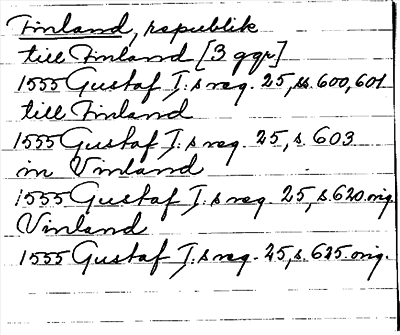 Finland, republik
till Finland [3 ggr]
1555 Gustaf I.s reg. 25, ss. 600, 601
till Finland
1555 Gustaf I.s reg. 25, s. 603
in Vinland
1555 Gustaf I.s reg. 25, s. 620. orig.
Vinland
1555 Gustaf I.s reg. 25, s. 625. orig.